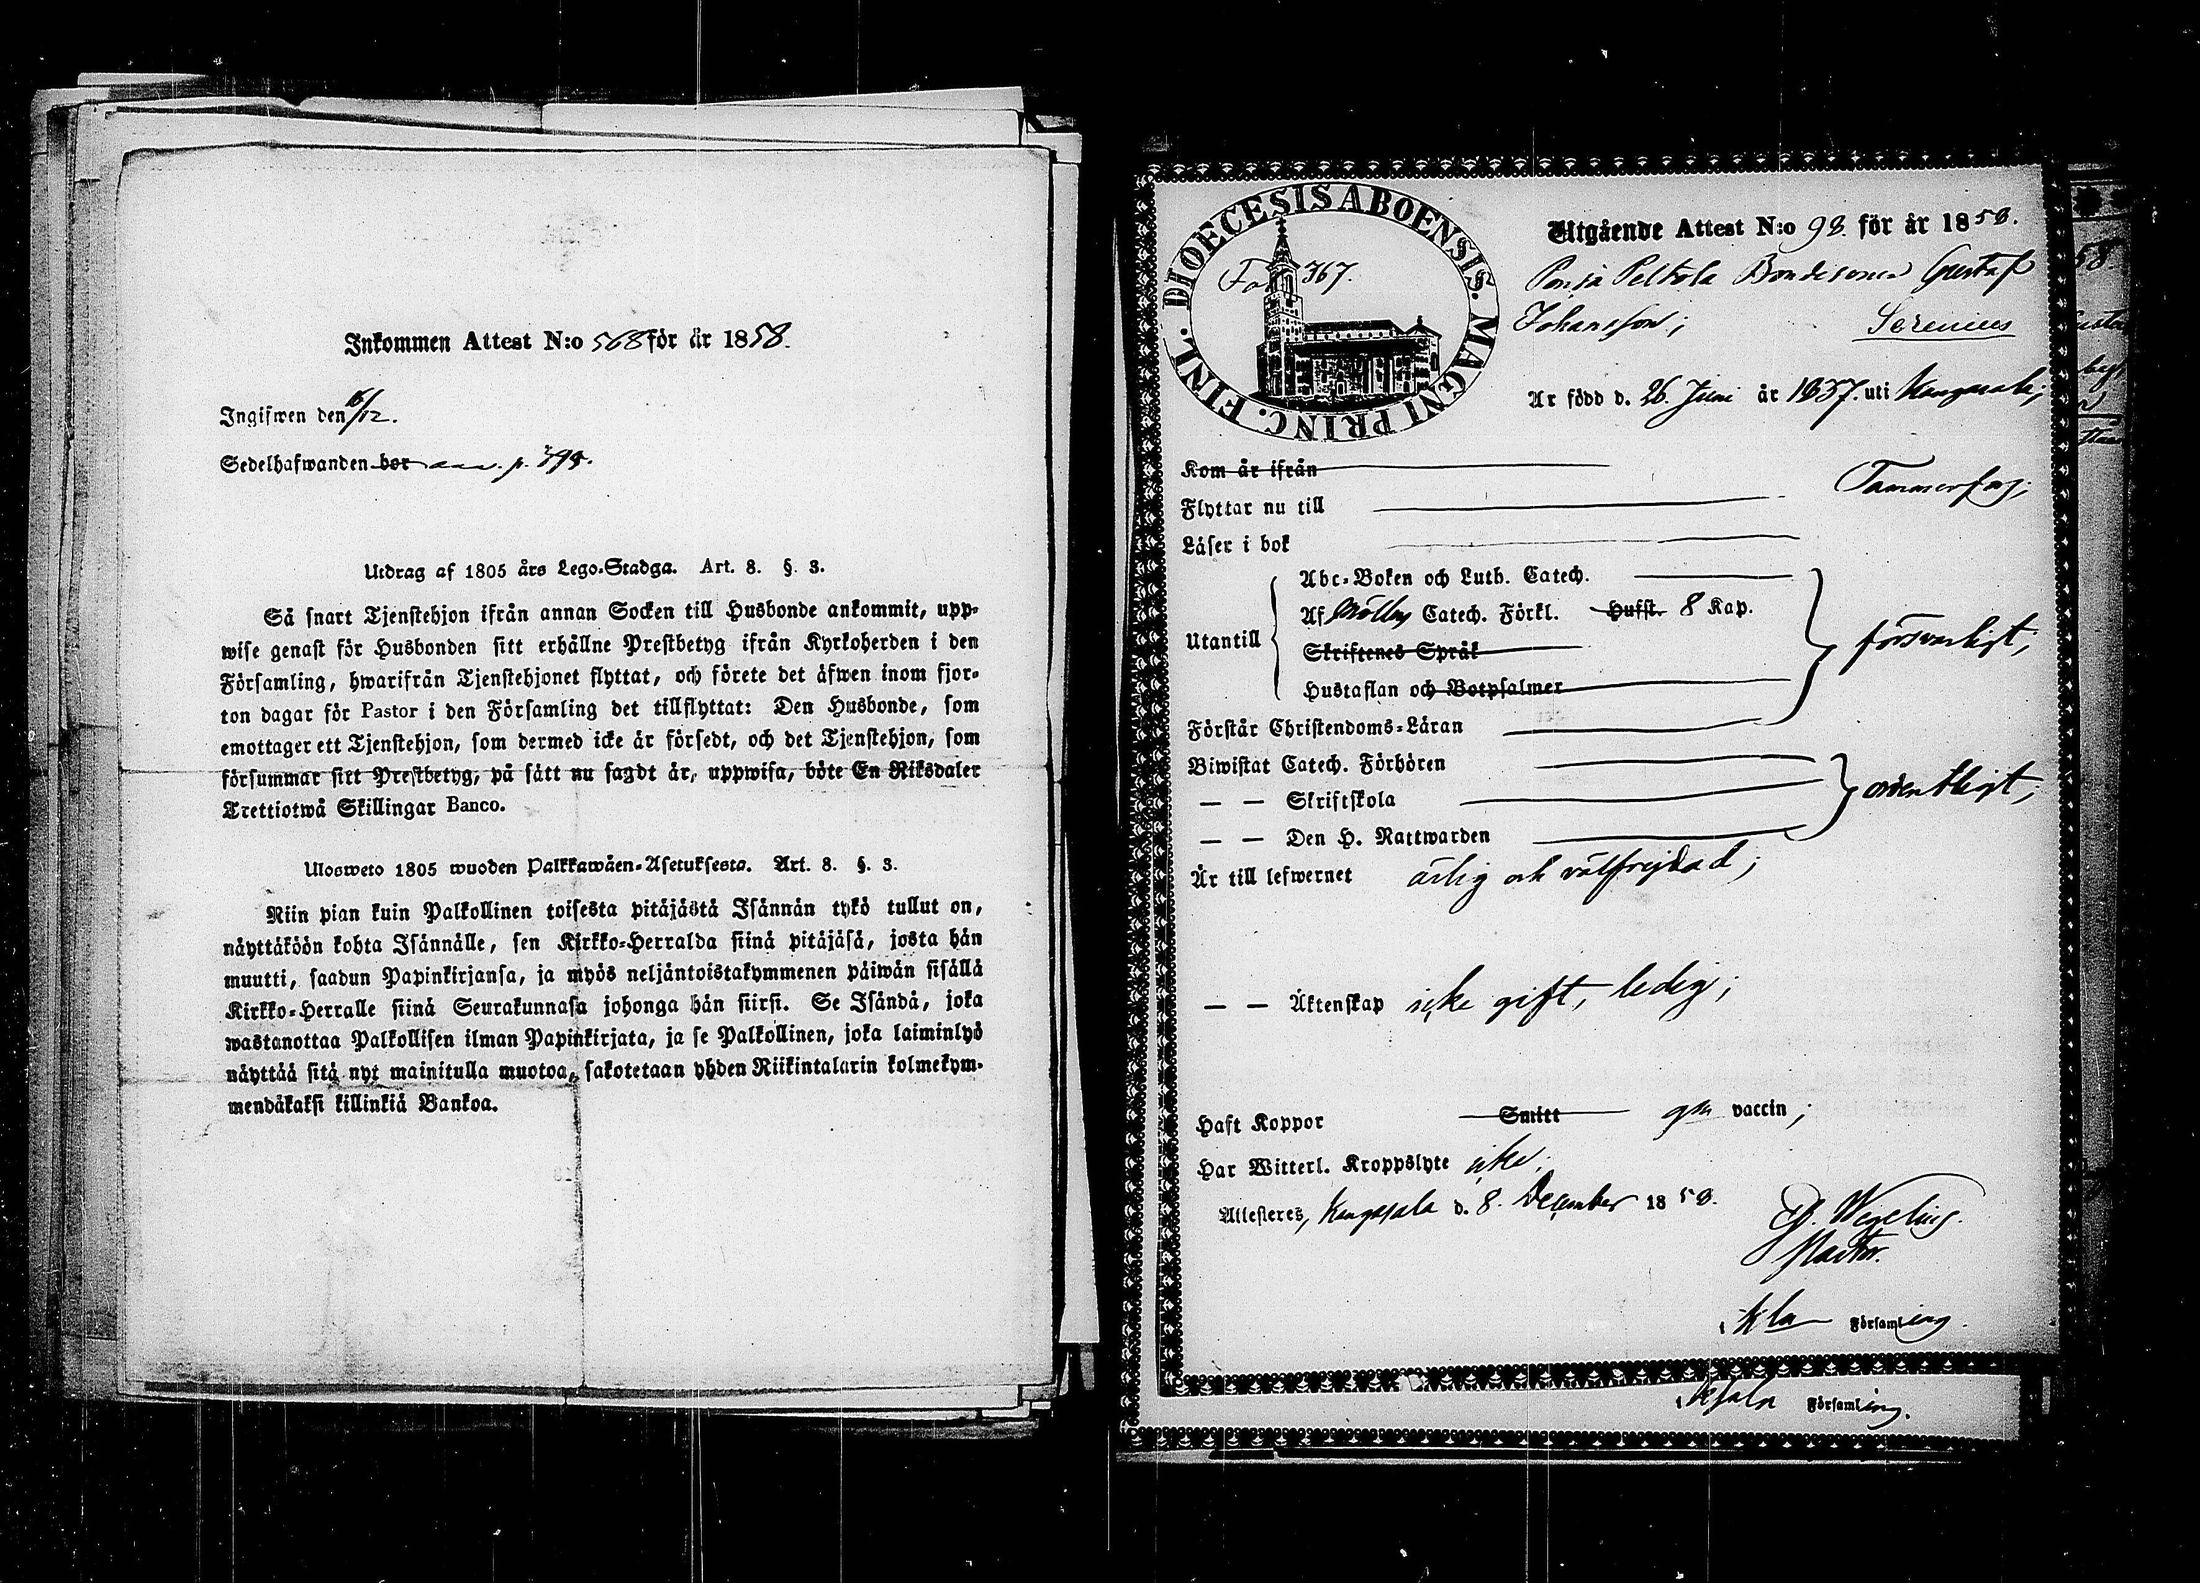 Inkommen Attest N:o 568 för år 1858.
Ingifwen den 16/12.
Sedelhafwanden bor p. 395.
Utdrag af 1805 års Lego-Stadga. Art. 8. §. 3.
Så snart Tjenstehjon ifrån annan Socken till Husbonde ankommit, upp-
wise genast för Husbonden sitt erhållne Prestbetyg ifrån Kyrkoherden i den
Församling, hwarifrån Tjenstehjonet flyttat, och förete det äfwen inom fjor-
ton dagar för Pastor i den Församling det tillflyttat: Den Husbonde, som
emottager ett Tjenstehjon, som dermed icke är försedt, och det Tjenstehjon, som
försummar sitt Prestbetyg, på sätt nu sagdt är, uppwisa, böte En Riksdaler
Trettiotwå Skillingar Banco.
Ulosweto 1805 wuoden Palkkawäen-Asetuksesta. Art. 8. §. 3.
Niin pian kuin Palkollinen toisesta pitäjästä Isännän tykö tullut on,
näyttäköön kohta Isännälle, sen Kirkko-Herralda siinä pitäjäsä, josta hän
muutti, saadun Papinkirjansa, ja myös neljäntoistakymmenen päiwän sisällä
Kirkko-Herralle siinä Seurakunnasa johonga hän siirsi. Se Isändä, joka
wastanottaa Palkollisen ilman Papinkirjata, ja se Palkollinen, joka laiminlyö
näyttää sitä nyt mainitulla muotoa, sakotetaan yhden Riikintalarin kolmekym-
mendäkaksi killinkiä Bankoa.
DIOECESIS ABOENSIS. MAGNI PRINC. FINL.
Fol. 367.
Utgående Attest N:o 98. för år 1858.
Ponsa Peltola Bondesonen Gustaf
Johansson; Serenius
Är född d. 26. Juni år 1837. uti Kangasala;
Kom år ifrån
Flyttar nu till Tammerfors;
Läser i bok
Utantill
Abc-Boken och Luth. Catech.
Af Möllers Catech. Förkl. Hufst. 8 Kap.
Skriftenes Språk
Hustaflan och Botpsalmer
försvarligt;
Förstår Christendoms-Läran
Biwistat Catech. Förhören
— — Skriftskola
ordentligt;
— — Den H. Nattwarden
Är till lefwernet ärlig och välfrejdad;
— — Äktenskap icke gift, ledig;
Haft Koppor Smitt gm vaccin;
Har Witterl. Kroppslyte icke;
Attesteres, Kangasala d. 8. December 1858.
Wegelius.
Pastor.
i Kla Församling.
i Ksala Församling.